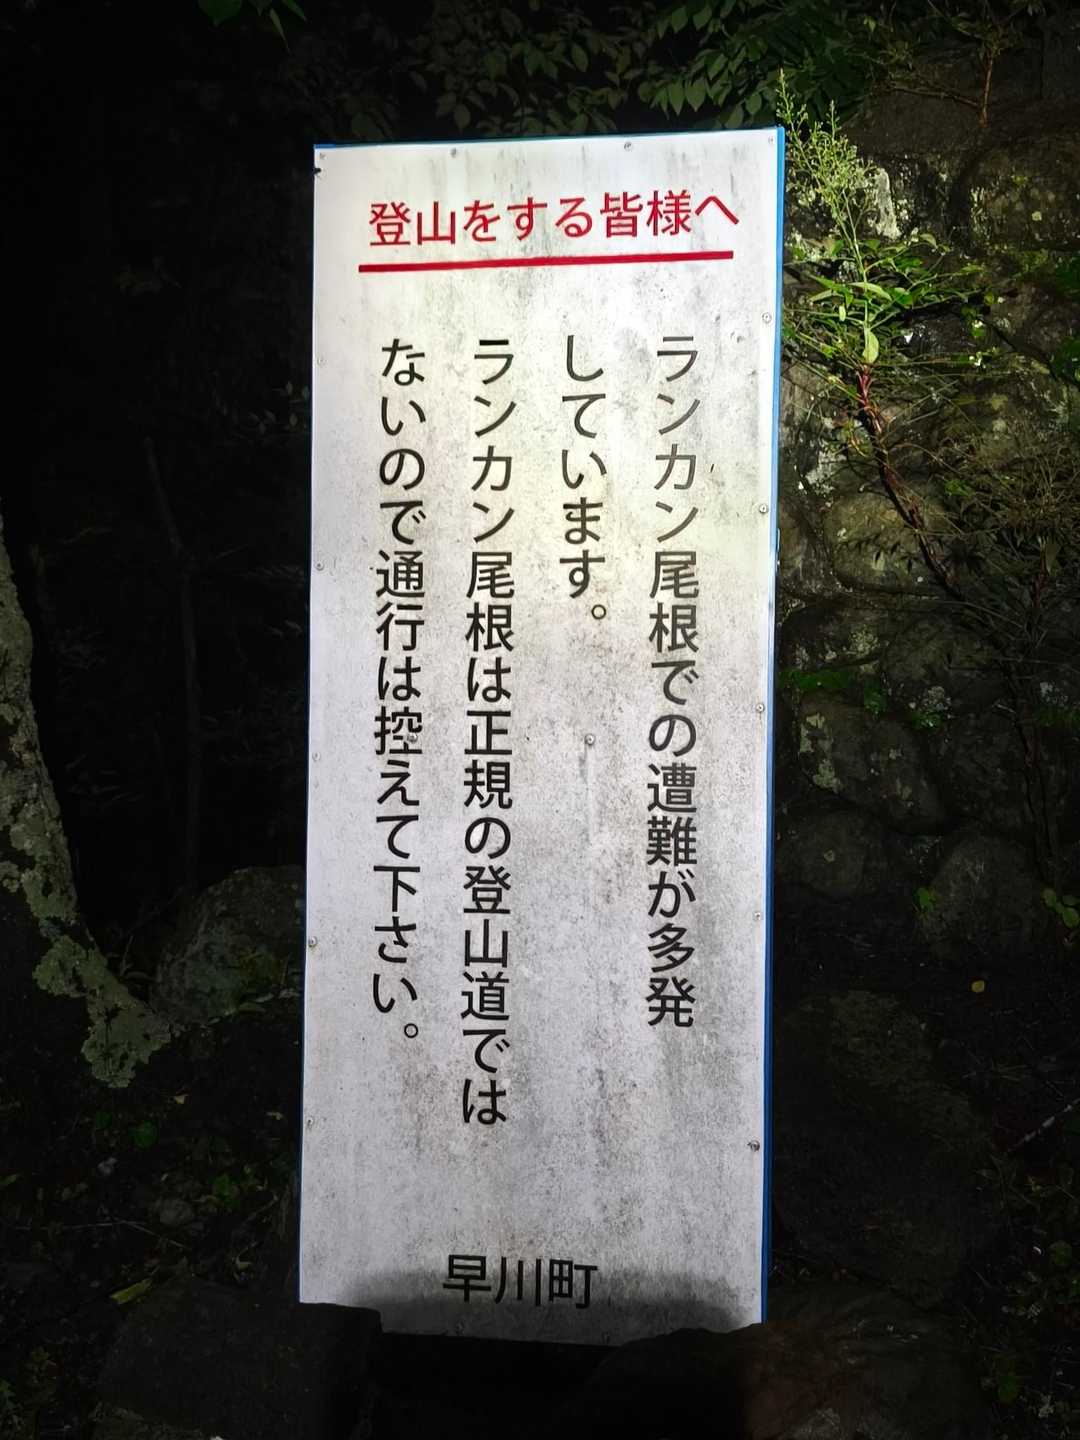 登山をする皆様へ
ランカン尾根での遭難が多発
しています。
ランカン尾根は正規の登山道では
ないので通行は控えて下さい。
早川町